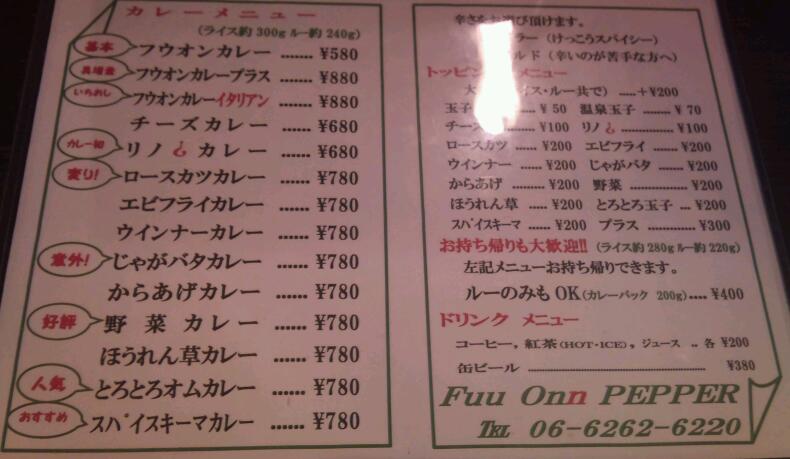 カレーメニュー
(ライス約300g ルー約240g)
基本 フウオンカレー ....... ¥580
具増量 フウオンカレープラス ....... ¥880
いちおし フウオンカレーイタリアン ....... ¥880
チーズカレー ...... ¥680
カレー初 リノ カレー ...... ¥680
変り! ロースカツカレー ...... ¥780
エビフライカレー ...... ¥780
ウインナーカレー ...... ¥780
意外! じゃがバタカレー ...... ¥780
からあげカレー ...... ¥780
好評 野菜カレー ...... ¥780
ほうれん草カレー ...... ¥780
人気 とろとろオムカレー ...... ¥780
おすすめ スパイスキーマカレー ...... ¥780
辛さをお選び頂けます。
ラー (けっこうスパイシー)
ルド (辛いのが苦手な方へ)
トッピング メニュー
大 イス・ルー共で) .....+¥200
玉子 ........ ¥ 50 温泉玉子 ........ ¥ 70
チーズ ........ ¥100 リノ ............... ¥100
ロースカツ ...... ¥200 エビフライ ....... ¥200
ウインナー ...... ¥200 じゃがバタ ....... ¥200
からあげ ......... ¥200 野菜 ................. ¥200
ほうれん草 ..... ¥200 とろとろ玉子 ... ¥200
スパイスキーマ ...... ¥200 プラス .............. ¥300
お持ち帰りも大歓迎!! (ライス約280g ルー約220g)
左記メニューお持ち帰りできます。
ルーのみもOK(カレーパック 200g).... ¥400
ドリンク メニュー
コーヒー, 紅茶(HOT・ICE), ジュース .. 各 ¥200
缶ビール ........................................ ¥380
Fuu Onn PEPPER
TEL 06-6262-6220